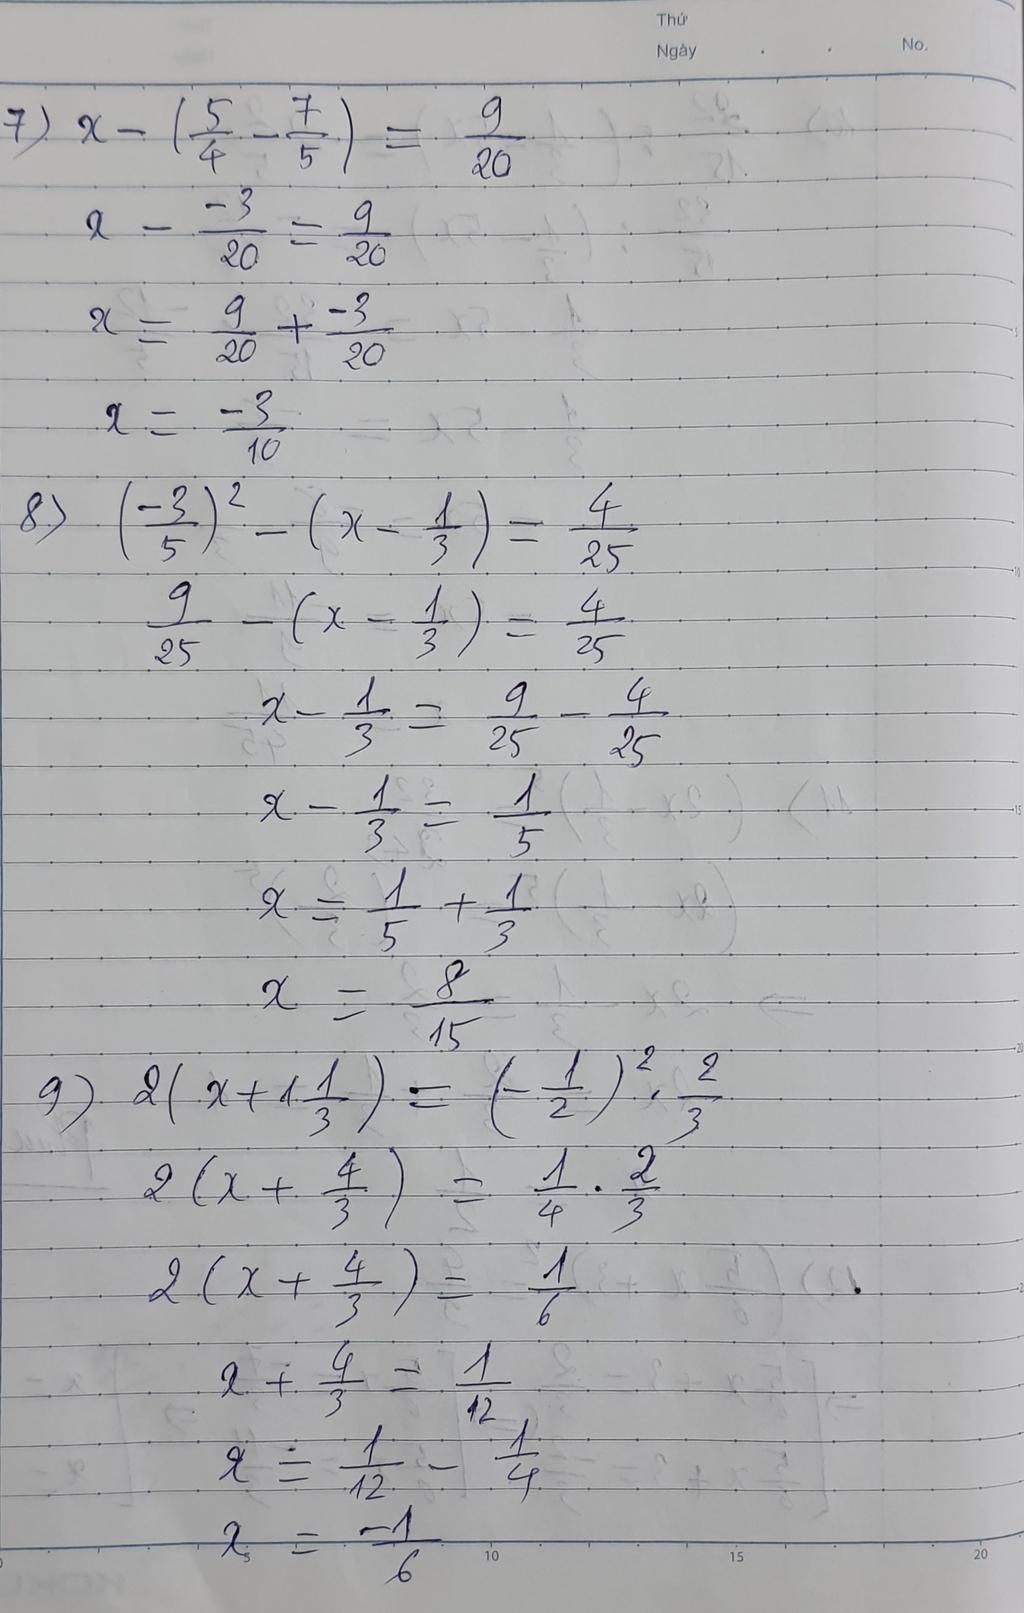 Thứ
Ngày . . No.
7) x - (5/4 - 7/5) = 9/20
x - -3/20 = 9/20
x = 9/20 + -3/20
x = -3/10
8) (-3/5)² - (x - 1/3) = 4/25
9/25 - (x - 1/3) = 4/25
x - 1/3 = 9/25 - 4/25
x - 1/3 = 1/5
x = 1/5 + 1/3
x = 8/15
9) 2(x + 1 1/3) = (-1/2)² . 2/3
2(x + 4/3) = 1/4 . 2/3
2(x + 4/3) = 1/6
x + 4/3 = 1/12
x = 1/12 - 1/4
x = -1/6
5 10 15 20